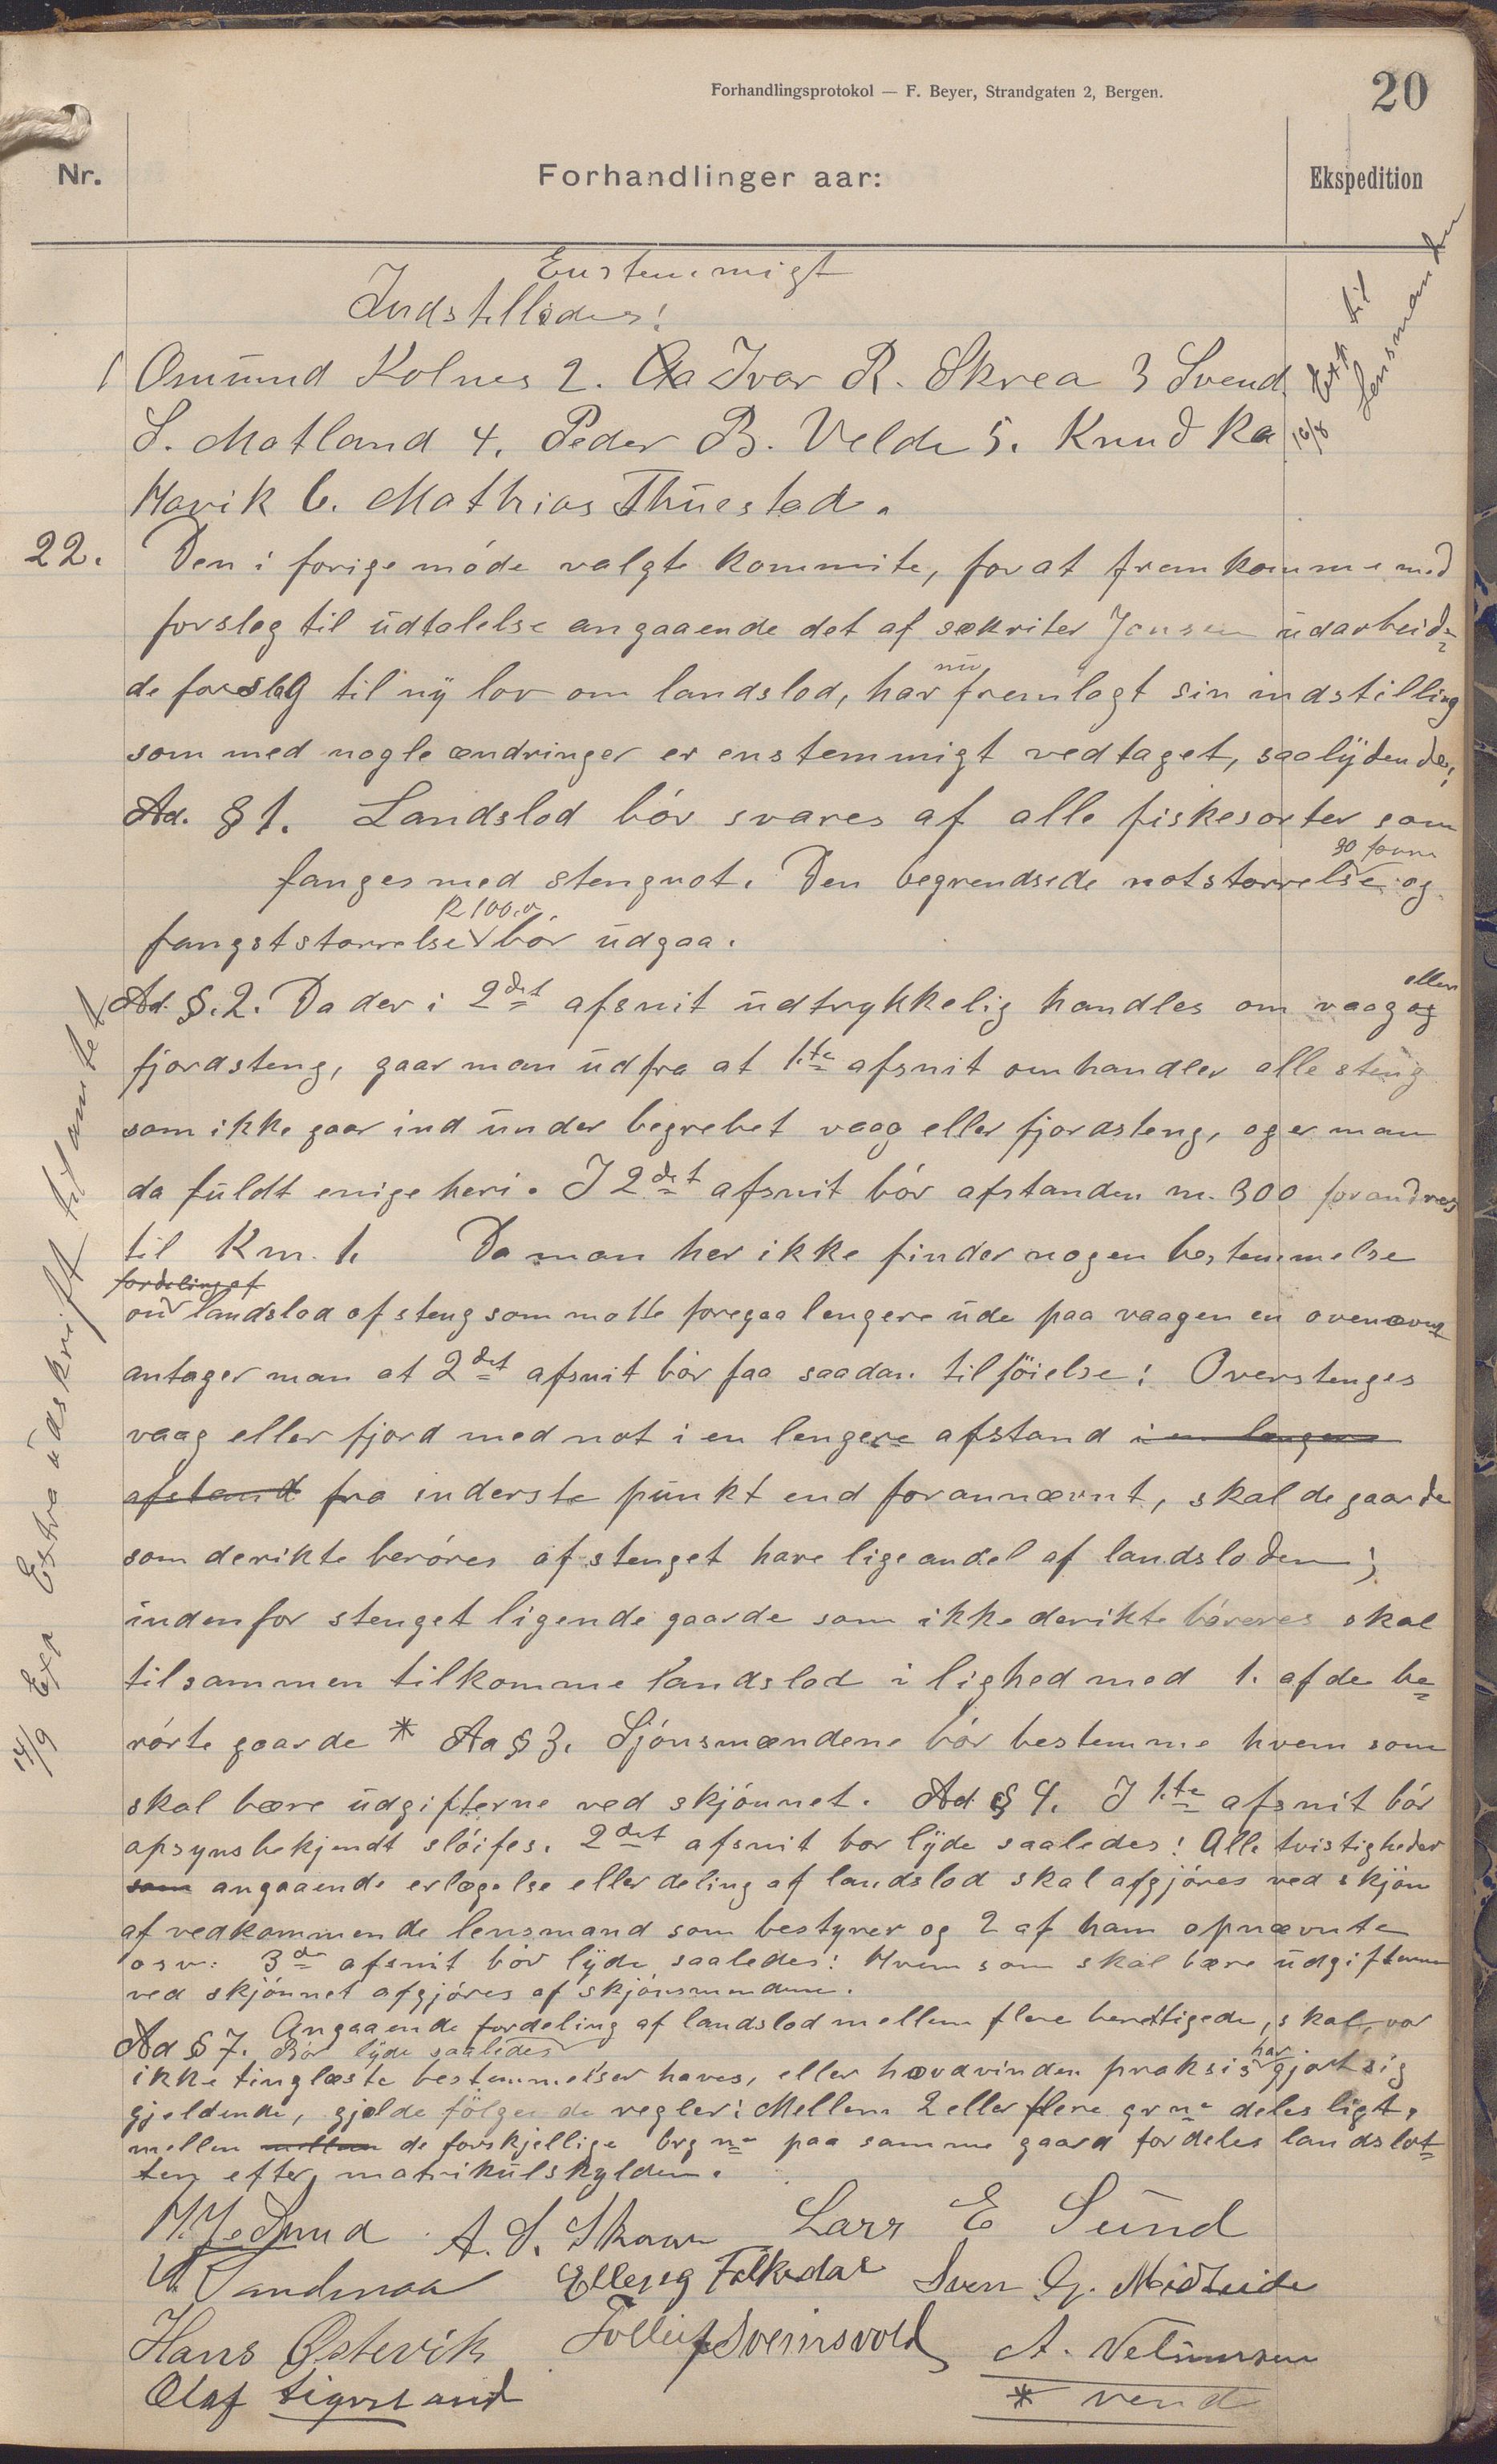 Forhandlingsprotokol — F. Beyer, Strandgaten 2, Bergen.
20
Nr.
Forhandlinger aar:
Ekspedition
Enstemmigt
Indstilledes:
1 Omund Kolnes 2. Ivar R. Skrea 3 Svend
S. Matland 4. Peder B. Velde 5. Knud Ka
Havik 6. Mathias Thuestad.
16/8 Exp til
lensmanden
22. Den i forige møde valgte kommite, for at fremkomme med
forslag til udtalelse angaaende det af sækriter Jansen udarbeid=
de forslag til ny lov om landslod, har nu fremlagt sin indstilling
som med nogle ændringer er enstemmigt vedtaget, saalydende:
Ad. § 1. Landslod bór svares af alle fiskesorter som
fanges med stengnot. Den begrendsede notstørrelse 90 favne og
fangststørrelse K 100.0 bór udgaa.
Ad. §. 2. Da der i 2det afsnit udtrykkelig handles om vaag og eller
fjordsteng, gaar man ud fra at 1.te afsnit omhandler alle steng
som ikke gaar ind under begrebet vaag eller fjordsteng, og er man
da fuldt enige heri. I 2det afsnit bór afstanden m. 300 forandres
til Km. 1. Da man her ikke finder nogen bestemmelse
fordeling af
om landslod af steng som motte foregaa lengere ude paa vaagen en ovenævnt
antager man at 2det afsnit bór faa saadan tilføielse: Overstenges
vaag eller fjord med not i en lengere afstand i en lengere
afstand fra inderste punkt end forannævnt, skal de gaarde
som derikte berøres af stenget have lige andel af landsloden;
indenfor stenget ligende gaarde som ikke derikte børeres skal
tilsammen tilkomme landslod i lighed med 1. af de be=
rørte gaarde * Aa § 3. Sjónsmændene bór bestemme hvem som
skal bære udgifterne ved skjónnet. Ad § 4. I 1.te afsnit bór
opsynsbekjendt slóifes. 2det afsnit bor lyde saaledes: Alle tvistigheder
som angaaende erlægelse eller deling af landslod skal afgjóres ved skjón
af vedkommende lensmand som bestyrer og 2 af ham opnævnte
osv. 3de afsnit bór lyde saaledes: Hvem som skal bære udgifterne
ved skjónnet afgjóres af skjónsmendene.
Angaaende fordeling af landslod mellem flere berettigede, skal, vor
Ad § 7. Bór lyde saaledes
ikke tinglæste bestemmelser haves, eller hævdvinden praksis har gjort sig
gjeldende, gjelde følgende regler: Mellem 2 eller flere grne deles ligt,
mellen mellem de forskjellige brgne paa samme gaard fordeles landslot=
ten efter matrikulskylden.
14/9 Exp Extra udskrift til amtet
A. S. Skaar Lars E Sund
Elleng Falkedal Sven G. Meidleide
Hans Østevik Tolleif Sveinsvold
* vend